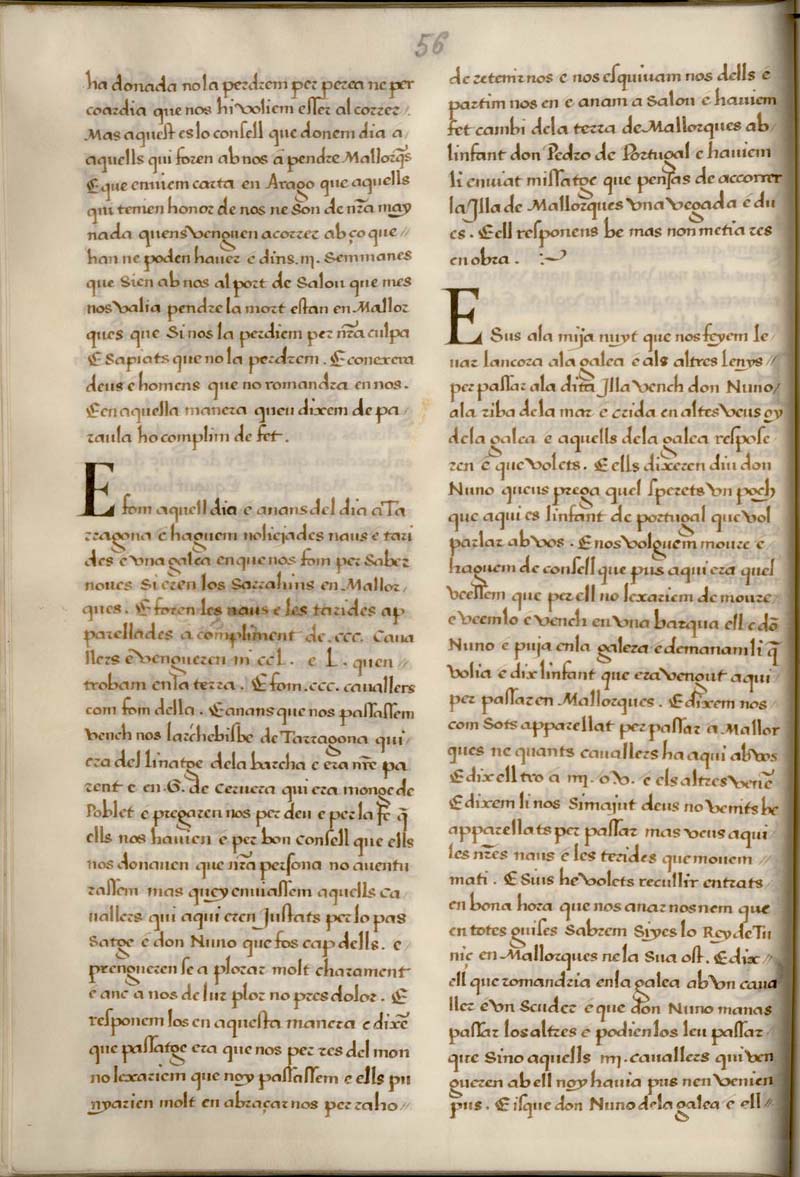 56
ha donada no la perdrem per perea ne per
coardia que nos hi voliem esser al correr.
Mas aquest es lo consell que donem dia a
aquells qui foren ab nos a pendre Mallorq̄s
E que enuiem carta en Arago que aquells
qui temen honor de nos ne son de nr̄a may
nada quens venguen acorrer ab ço que //
han ne poden hauer e dins .iij. Semmanes
que Sien ab nos al port de Salou que mes
nos valia pendre la mort estan en Mallor
ques que Si nos la perdiem per nr̄a culpa
E Sapiats que no la perdrem. E conexera
deus e homens que no romandra en nos.
E en aquella manera queu dixem de pa
raula ho complim de fet.
E fom aquell dia e anans del dia a Ta
rragona e haguem noliejades naus e tari
des e vna galea en que nos fom per Saber
noues Si eren los Sarrahins en Mallor
ques. E foren les naus e les tarides ap
parellades a compliment de .ccc. Caua
llers e vengueren ni ccL. e L. quen
trobam en la terra. E fom .ccc. cauallers
com fom della. E anans que nos passassem
vench nos larchebisbe de Tarragona qui
era del linatge de la barcha e era nr̄e pa
rent e en .G. de Ceruera qui era monge de
Poblet e pregaren nos per deu e per la fe q̄
ells nos hauien e per bon consell que ells
nos donauen que nr̄a persona no auentu
rassem mas quey enuiassem aquells ca
uallers qui aqui eren Justats per lo pas
Satge e don Nuno que fos cap dells. e
prengueren se a plorar molt charament
e anc a nos de lur plor no pres dolor. E
responem los en aquesta manera e dixē
que passatge era que nos per res del mon
no lexariem que noy passassem e ells pu
nyarien molt en abraçar nos per raho //
de retenir nos e nos esquiuam nos dells e
partim nos en e anam a Salou e hauiem
fet cambi dela terra de Mallorques ab
linfant don Pedro de Portugal e hauiem
li enuiat missatge que pensas de accorrer
la Jlla de Mallorques vna vegada e du
es. E ell responens be mas non metia res
en obra.
E Sus a la mija nuyt que nos feyem le
uar lancora a la galea e als altres lenys //
per passar a la dita Jlla vench don Nuno /
a la riba dela mar e crida en altes veus oy
dela galea e aquells dela galea respose
ren e que volets. E ells dixeren diu don
Nuno queus prega quel sperets vn poch
que aqui es linfant de portugal que vol
parlar ab vos. E nos volguem moure e
haguem de consell que pus aqui era quel
veessem que per ell no lexariem de moure
e veem lo e vench en vna barqua ell e dō
Nuno e puja en la galera e demanam li q̄
volia e dix linfant que era vengut aqui
per passar en Mallorques. E dixem nos
com Sots apparellat per passar a Mallor
ques ne quants cauallers ha aqui ab vos
E dix ell tro a iiij. o V. e els altres venē
E dixem li nos Si majut deus no venits be
apparellats per passar mas veus aqui
les nr̄es naus e les terides que mouem //
mati. E Si us he volets recullir entrats
en bona hora que nos anar nosnem que
en totes guises Sabrem Si yes lo Rey de Tu
niç en Mallorques ne la Sua ost. E dix //
ell que romandria en la galea ab vn caua
ller e vn Scuder e que don Nuno manas
passar los altres e podien los leu passar
que Sino aquells iiij. cauallers qui ven
gueren ab ell noy hauia pus nen venien
pus. E isque don Nuno de la galea e ell //